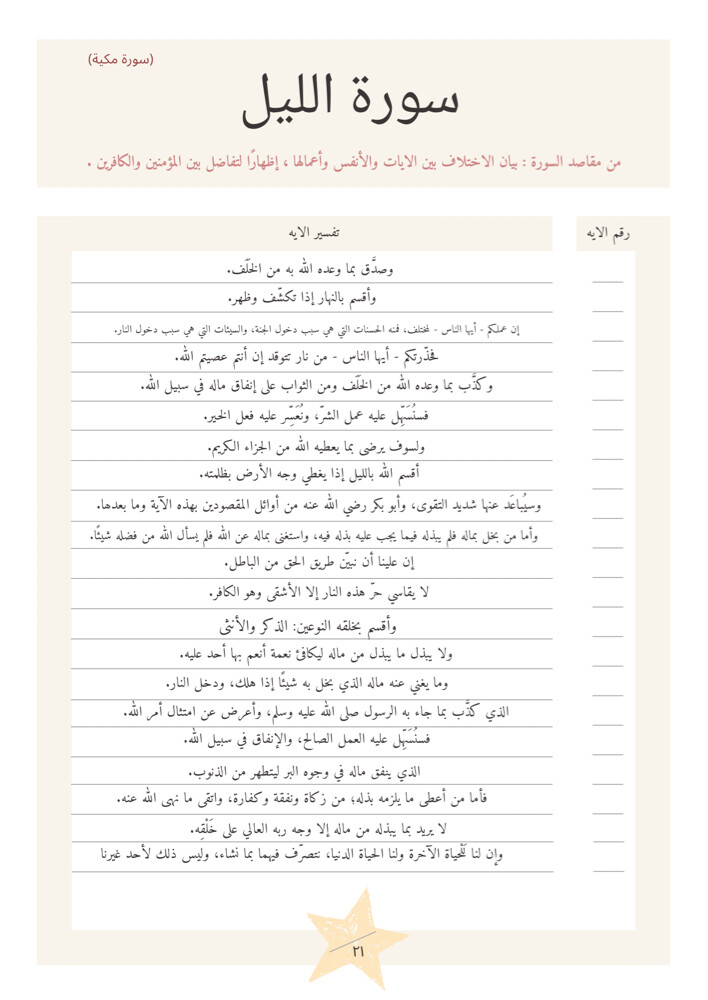 (سورة مكية)
سورة الليل
من مقاصد السورة : بيان الاختلاف بين الايات والأنفس وأعمالها ، إظهارًا لتفاضل بين المؤمنين والكافرين .
رقم الايه
تفسير الايه
وصدَّق بما وعده الله به من الخَلَف.
وأقسم بالنهار إذا تكشّف وظهر.
إن عملكم - أيها الناس - لمختلف، فمنه الحسنات التي هي سبب دخول الجنة، والسيئات التي هي سبب دخول النار.
فحذّرتكم - أيها الناس - من نار تتوقد إن أنتم عصيتم الله.
وكذَّب بما وعده الله من الخَلَف ومن الثواب على إنفاق ماله في سبيل الله.
فسنُسَهِّل عليه عمل الشرّ، ونُعَسِّر عليه فعل الخير.
ولسوف يرضى بما يعطيه الله من الجزاء الكريم.
أقسم الله بالليل إذا يغطي وجه الأرض بظلمته.
وسيُباعَد عنها شديد التقوى، وأبو بكر رضي الله عنه من أوائل المقصودين بهذه الآية وما بعدها.
وأما من بخل بماله فلم يبذله فيما يجب عليه بذله فيه، واستغنى بماله عن الله فلم يسأل الله من فضله شيئًا.
إن علينا أن نبيّن طريق الحق من الباطل.
لا يقاسي حرّ هذه النار إلا الأشقى وهو الكافر.
وأقسم بخلقه النوعين: الذكر والأنثى
ولا يبذل ما يبذل من ماله ليكافئ نعمة أنعم بها أحد عليه.
وما يغني عنه ماله الذي بخل به شيئًا إذا هلك، ودخل النار.
الذي كذَّب بما جاء به الرسول صلى الله عليه وسلم، وأعرض عن امتثال أمر الله.
فسنُسَهِّل عليه العمل الصالح، والإنفاق في سبيل الله.
الذي ينفق ماله في وجوه البر ليتطهر من الذنوب.
فأما من أعطى ما يلزمه بذله؛ من زكاة ونفقة وكفارة، واتقى ما نهى الله عنه.
لا يريد بما يبذله من ماله إلا وجه ربه العالي على خَلْقِه.
وإن لنا لَلْحياة الآخرة ولنا الحياة الدنيا، نتصرّف فيهما بما نشاء، وليس ذلك لأحد غيرنا
٢١